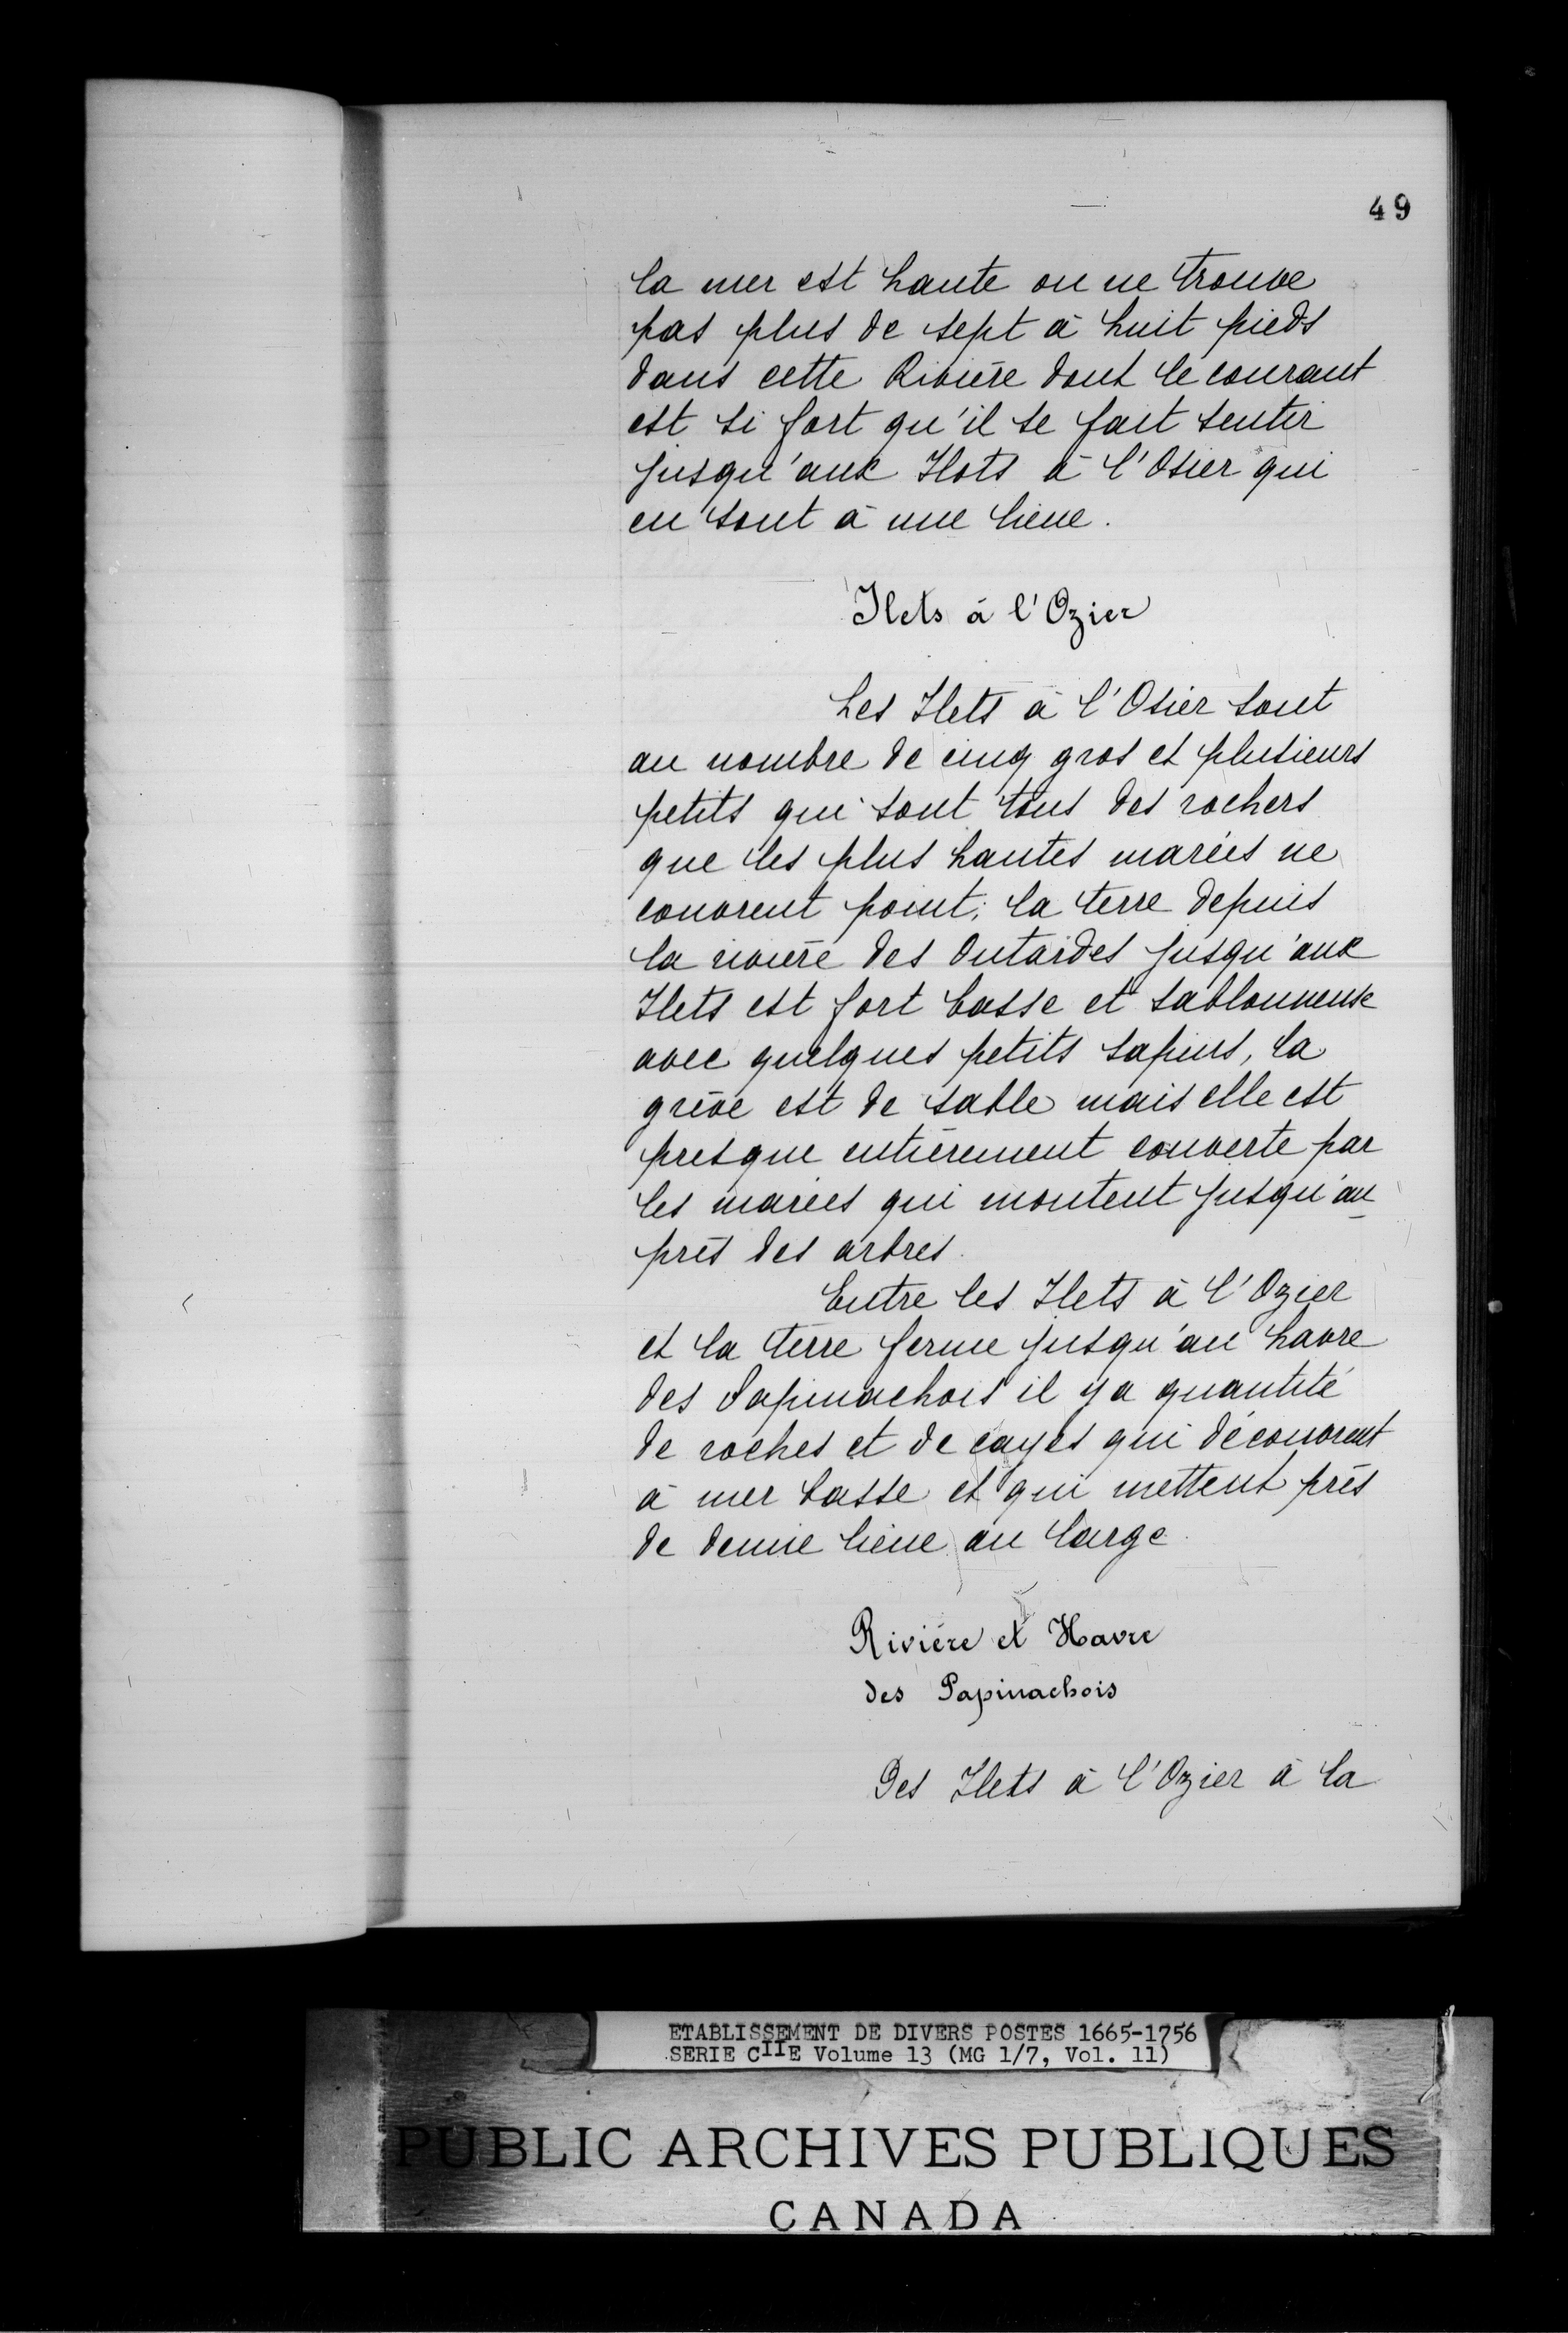 49
la mer est haute on ne trouve
pas plus de sept à huit pieds
dans cette Rivière dont le courant
est si fort qu'il se fait sentir
jusqu'aux Ilots à l'Osier qui
en sont à une lieue.
Ilets à l'Ozier
Les Ilets à l'Osier sont
au nombre de cinq gros et plusieurs
petits qui sont tous des rochers
que les plus hautes marées ne
couvrent point; la terre depuis
la rivière des Outardes jusqu'aux
Ilets est fort basse et sablonneuse
avec quelques petits sapins, la
grève est de sable mais elle est
presque entièrement couverte par
les marées qui montent jusqu'au
près des arbres.
Entre les Ilets à l'Ozier
et la terre ferme jusqu'au havre
des Papinachois il y a quantité
de roches et de cayes qui découvrent
à mer basse et qui mettent près
de demie lieue au large.
Rivière et Havre
des Papinachois
Des Ilets à l'Ozier à la
ETABLISSEMENT DE DIVERS POSTES 1665-1756
SERIE CIIE Volume 13 (MG 1/7, Vol. 11)
PUBLIC ARCHIVES PUBLIQUES
CANADA